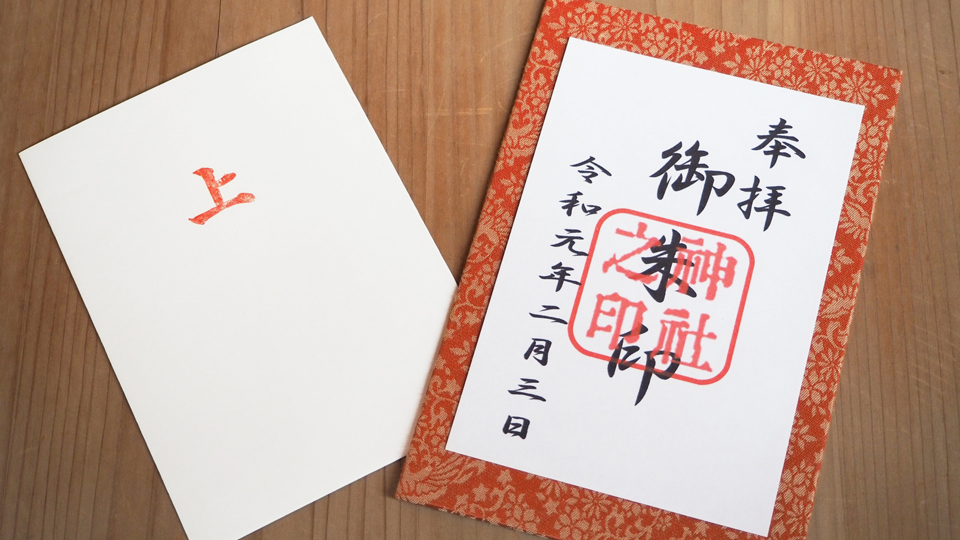 上
奉拝
御朱印
神社之印
令和元年二月三日